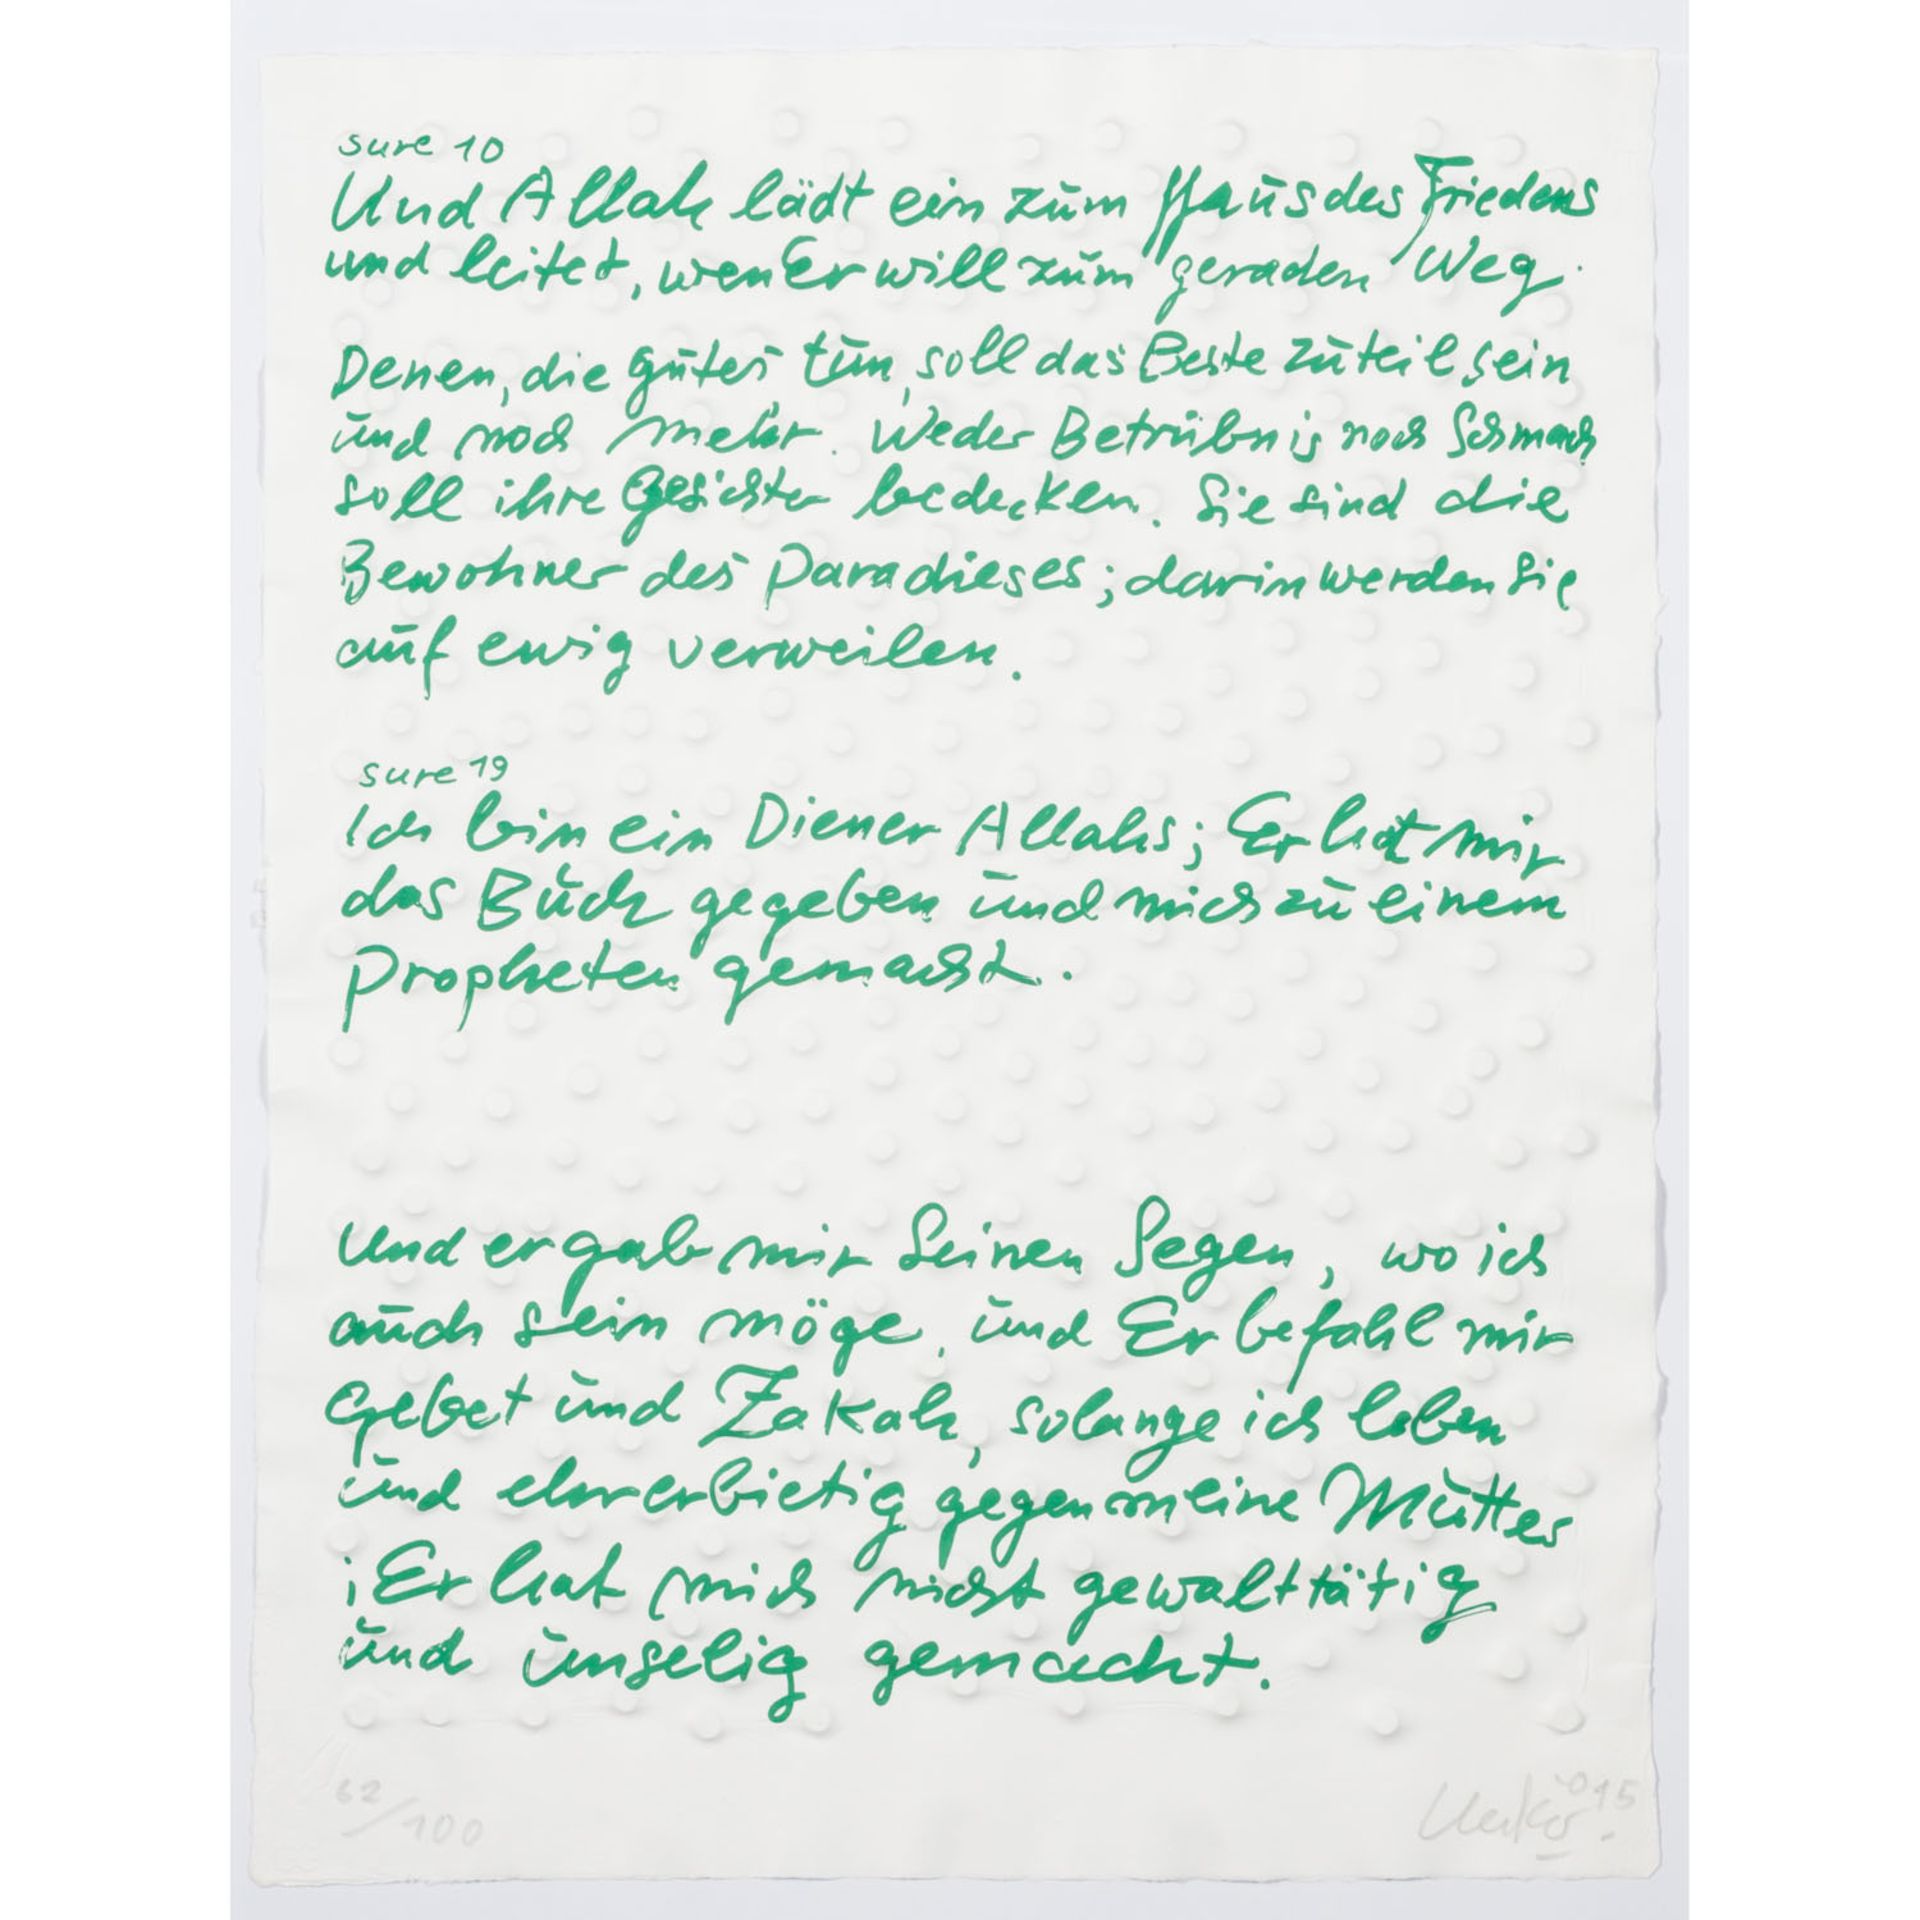 sure 10
Und Allah lädt ein zum Haus des Friedens
und leitet, wen Er will zum geraden Weg.
Denen, die gutes tun, soll das Beste zuteil sein
und noch mehr. Weder Betrübnis noch Schmach
soll ihre Gesichter bedecken. Sie sind die
Bewohner des Paradieses; darin werden sie
auf ewig verweilen.
sure 19
Ich bin ein Diener Allahs; Er hat mir
das Buch gegeben und mich zu einem
Propheten gemacht.
Und er gab mir Seinen Segen, wo ich
auch sein möge, und Er befahl mir
Gebet und Zakah, solange ich leben
und ehrerbietig gegen meine Mutter
; Er hat mich nicht gewalttätig
und unselig gemacht.
62/100
Uecker 015